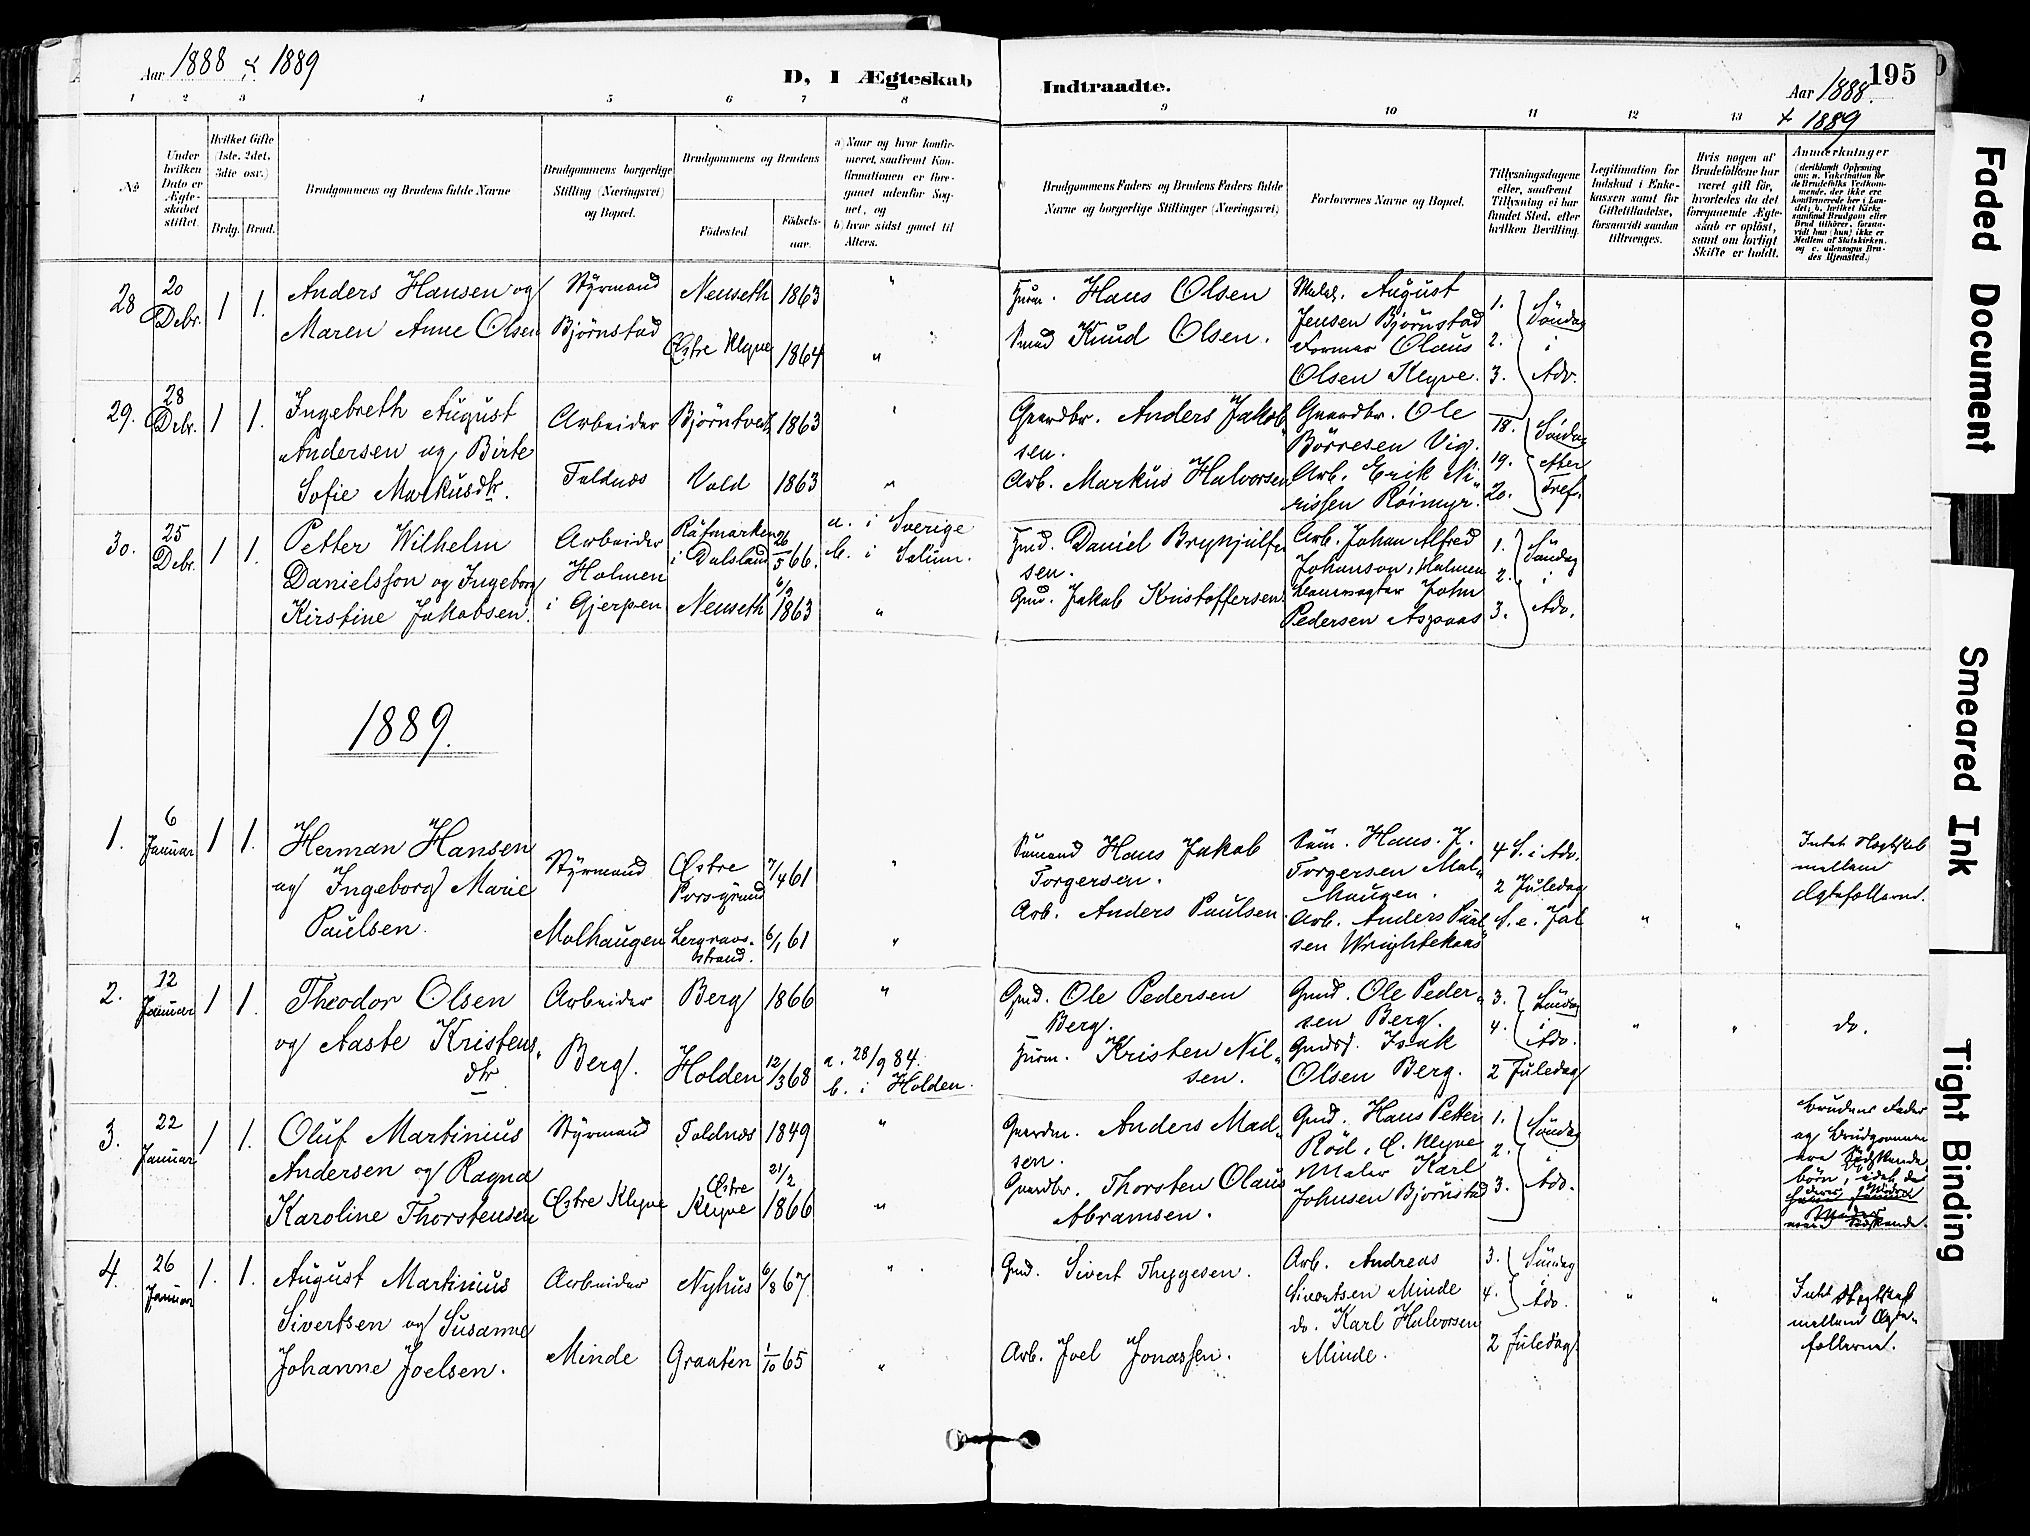 Aar 1888 & 1889
D, I Ægteskab Indtraadte.
Aar 1888. 195
+ 1889
1 2 3 4 5 6 7 8 9 10 11 12 13
No
Under hvilken Dato er Ægteskabet stiftet.
Hvilket Gifte (1ste, 2det, 3die osv.)
Brdg. Brud.
Brudgommens og Brudens fulde Navne
Brudgommens borgerlige Stilling (Næringsvei) og Bopæl.
Brudgommens og Brudens
Fødested
Fødselsaar.
a) Naar og hvor konfirmeret, saafremt Konfirmationen er foregaaet udenfor Sognet, og
b) hvor sidst gaaet til Alters.
Brudgommens Faders og Brudens Faders fulde Navne og borgerlige Stillinger (Næringsvei)
Forlovernes Navne og Bopæl.
Tillysningsdagene eller, saafremt Tillysning ei har fundet Sted, efter hvilken Bevilling.
Legitimation for Indskud i Enkekassen samt for Giftetilladelse, forsaavidt saadan tiltrænges.
Hvis nogen af Brudefolkene har været gift før, hvorledes da det foregaaende Ægteskab er opløst, samt om lovligt Skifte er holdt.
Anmerkninger
28 20 Debr. 1 1. Anders Hansen og
Maren Anne Olsen
Styrmand
Bjørnstad
Nenseth 1863
Østre Klyve 1864
" "
Hans Olsen
Knud Olsen.
August
Jensen Bjørnstad
Former Olaus
Olsen Klyve.
1. Søndag
2. i
3. Adv.
29. 28 Debr. 1 1. Ingebreth August
Andersen og Birte
Sofie Markusdtr.
Arbeider
Foldnæs
Bjørntvedt 1863
Vold 1863
" "
Gaardbr. Anders Jakob-
sen.
Arb. Markus Halvorsen
Gaardbr. Ole
Børresen Vig.
Arb. Erik Ni-
rissen Röimyr.
18. Søndag
19. efter
20. Tref.
30. 25 Debr. 1 1. Petter Wilhelm
Danielsson og Ingeborg
Kirstine Jakobsen.
Arbeider
Holmen
i Gjerpen
Råfmarken
i Dalsland 26/5 66.
Nenseth 6/2 1863
a. i Sverige
b. i Solum.
"
Daniel Brynjulf-
sen.
Gmd. Jakob Kristoffersen.
Arb. Johan Alfred
Johanson, Holmen
John
Pedersen Aspaas
1. Søndag
2. i
3. Adv.
1889.
1. 6 Januar 1 1. Herman Hansen
og Ingeborg Marie
Paulsen.
Styrmand
Molhaugen
Østre
Porsgrund 7/4 61
Lergravs-
strand. 6/1 61
" "
Sømand Hans Jakob
Torgersen.
Arb. Anders Paulsen.
Søm. Hans J.
Torgersen Mol-
haugen.
Arb. Anders Paul-
sen Wrightekaas
4 S. i Adv.
2 Juledag
S. e. Jul
" "
Intet Slegtskab
mellem
Ægtefolkene.
2. 12 Januar 1 1. Theodor Olsen
og Aaste Kristens-
dtr.
Arbeider
Berg.
Berg 1866
Holden 12/3 68
"
a. 28/9 84.
b. i Holden.
Gmd. Ole Pedersen
Berg.
Husm. Kristen Nil-
sen.
Gmd. Ole Peder-
sen Berg.
Isak
Olsen Berg.
3. Søndag
4. i
Adv.
2 Juledag
" "
do.
3. 22 Januar 1 1. Oluf Martinius
Andersen og Ragna
Karoline Thorstensen
Styrmand
Østre Klyve
Foldnæs 1849
Østre
Klyve 21/2 1866
" "
Gaardm. Anders Mad-
sen.
Gaardbr. Thorsten Olaus
Abramsen.
Gmd. Hans Petter
Röd, Ö. Klyve
Maler Karl
Johnsen Bjørnstad
1. Søndag
2. i
3. Adv.
Brudens Fader
og Brudgommen
ere Sødskende
børn, idet
4. 26 Januar 1. 1. August Martinius
Sivertsen og Susanne
Johanne Joelsen.
Arbeider
Minde
Nyhus 6/8 67.
Graaten 1/10 65
" "
Gmd. Sivert Thygesen.
Arb. Joel Jonassen.
Arb. Andreas
Sivertsen Minde
do. Karl Halvorsen
Minde.
3. Søndag
4. i
Adv.
2 Juledag.
" "
Intet Slegtskab
mellem Ægte-
folkene.
Faded Document
Smeared Ink
Tight Binding